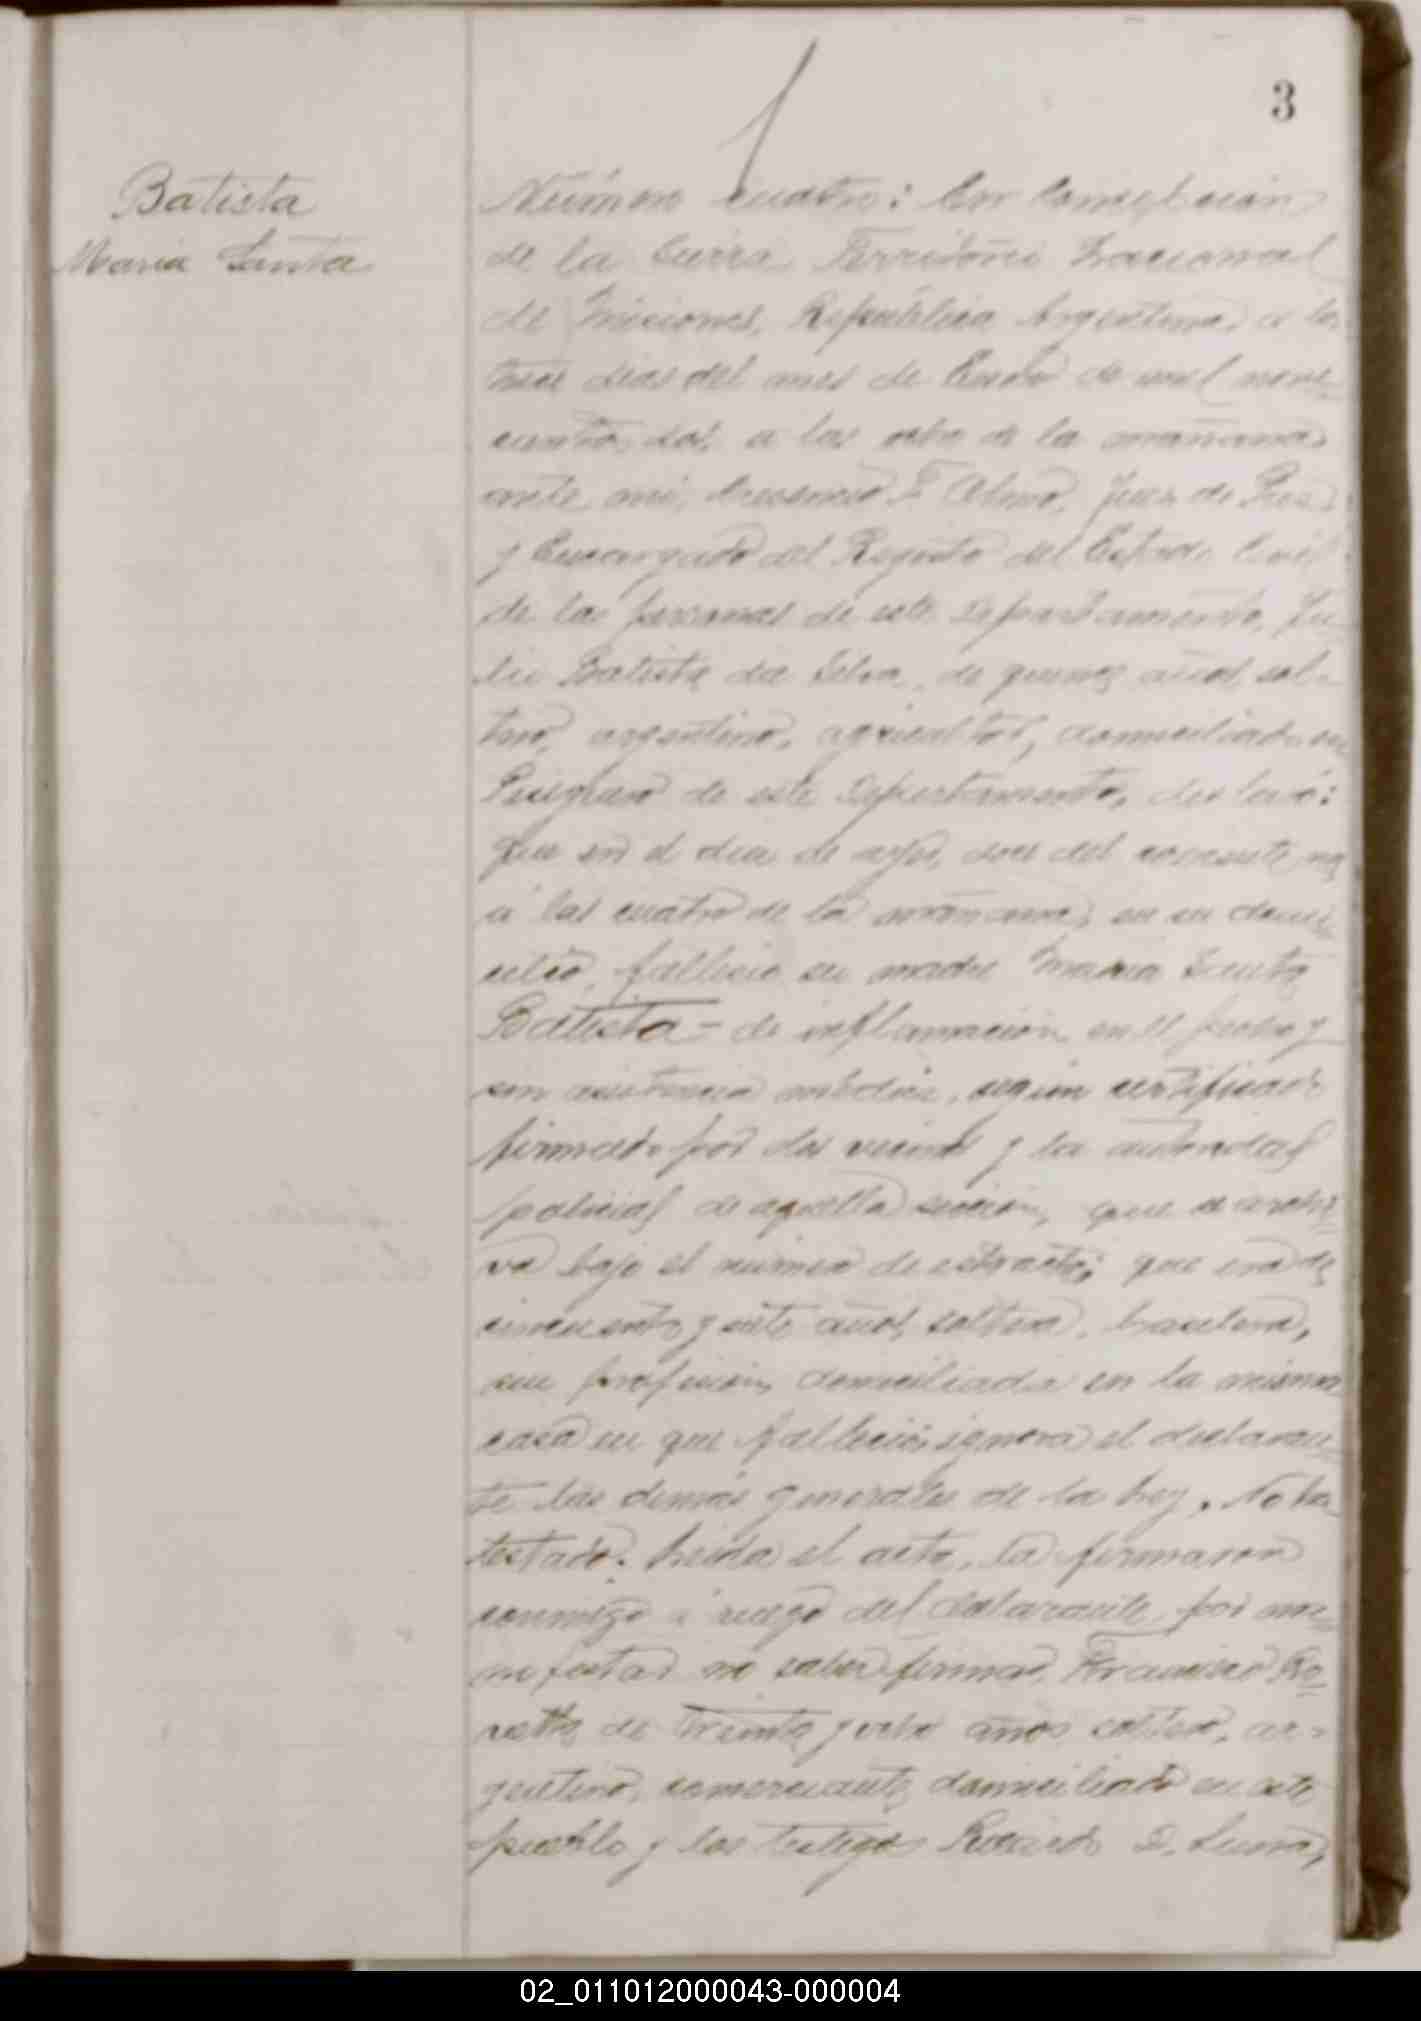 3
Batista
Maria Santa
Número cuatro: En Concepcion
de la Sierra Territorio Nacional
de Misiones, Republica Argentina, a los
trece dias del mes de Enero de mil nove-
cientos dos, a las ocho de la mañana
ante mi, F. Juez de Paz
y Encargado del Registro del Estado Civil
de las personas de este Departamento, Ju-
lio Batista da Silva, de quince años, sol-
tero, argentino, agricultor, domiciliado en
de este Departamento, declaró:
Que en el dia de ayer, doce del corriente mes
a las cuatro de la mañana, en su domi-
cilio, fallecio su madre Maria Santa
Batista - de inflamacion en el pecho y
sin asistencia médica, segun certificado
firmado por dos vecinos y la autoridad
policial de aquella seccion, que se archi-
va bajo el numero de este acto; que era de
cincuenta y siete años, soltera, brasilera,
sin profesion, domiciliada en la misma
casa en que fallecio; ignora el declaran-
te las demas generales de la Ley. No ha
testado. Leida el acta, la firmaron
conmigo a ruego del declarante, por ma-
nifestar no saber firmar, Francisco
de treinta y ocho años soltero, ar-
gentino, comerciante, domiciliado en este
pueblo y los testigos Ricardo D. Luna,
02_011012000043-000004